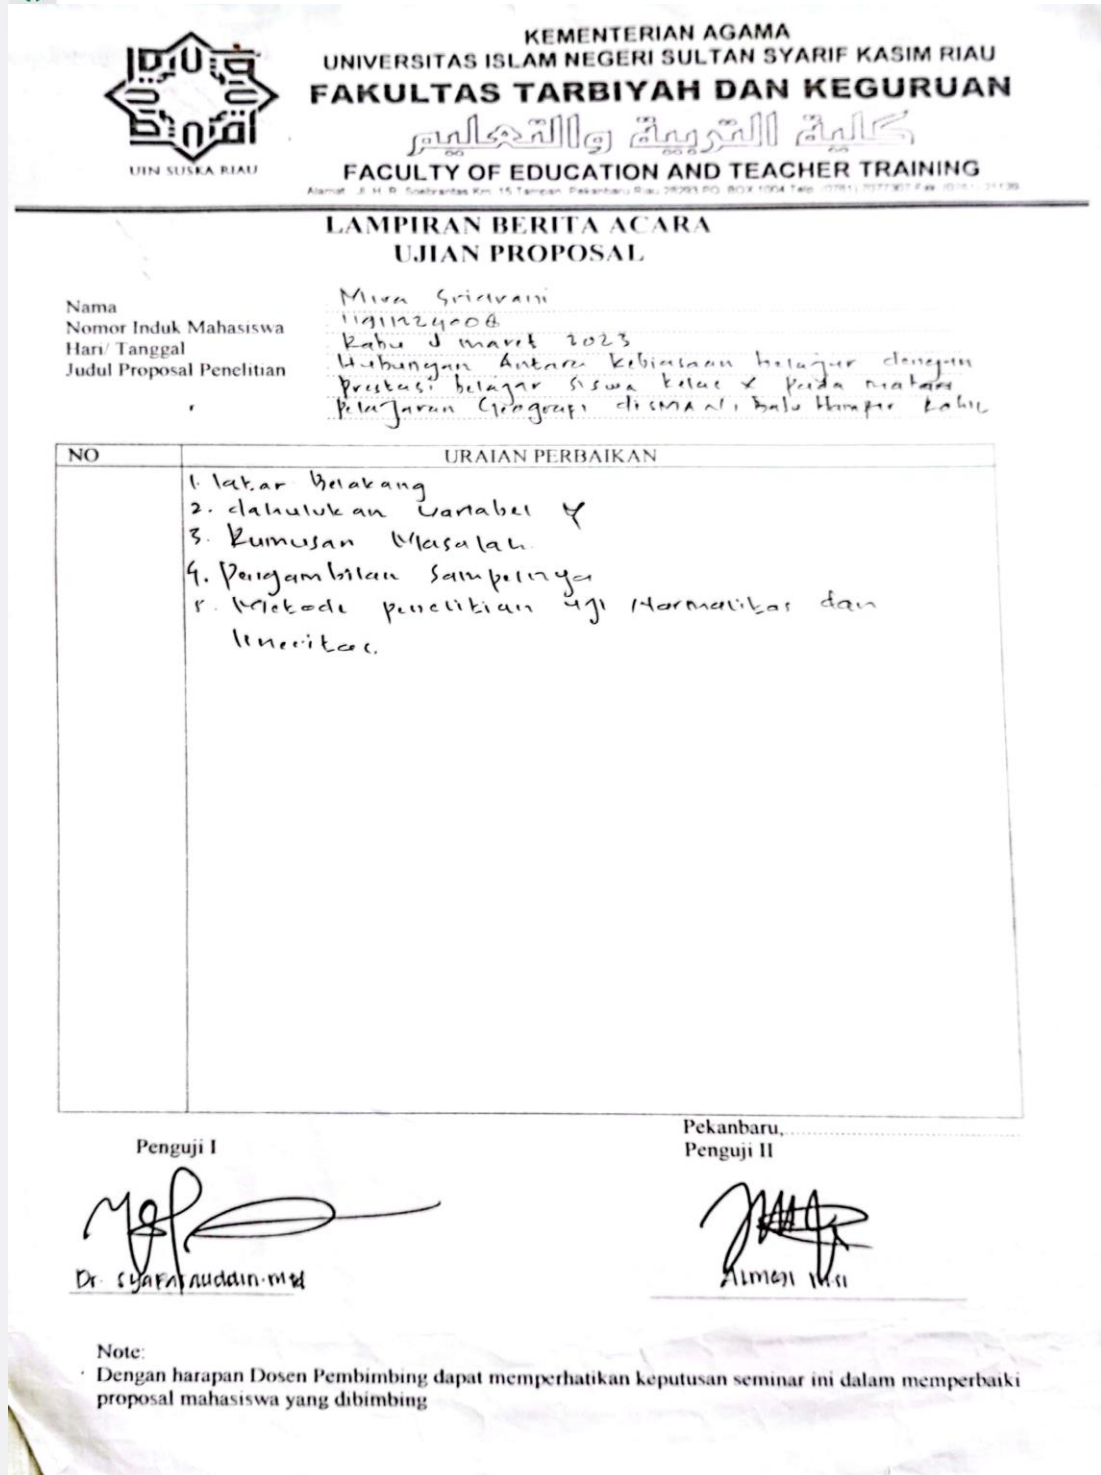 KEMENTERIAN AGAMA
UNIVERSITAS ISLAM NEGERI SULTAN SYARIF KASIM RIAU
FAKULTAS TARBIYAH DAN KEGURUAN
كلية التربية والتعليم
FACULTY OF EDUCATION AND TEACHER TRAINING
UIN SUSKA RIAU
Alamat Jl. H. R. Soebrantas Km. 15 Tampan Pekanbaru Riau 28293 PO. BOX 1004 Telp. (0761)
LAMPIRAN BERITA ACARA
UJIAN PROPOSAL
Nama Mira Sridvani
Nomor Induk Mahasiswa
Hari/ Tanggal Rabu maret 2023
Judul Proposal Penelitian Hubungan Antara kebiasaan belajar dengan
Prestasi belajar siswa kelas X Pada mata
pelajaran Geografi di SMA N 1
NO URAIAN PERBAIKAN
1. latar Belakang
2. dahulukan Variabel Y
3. Rumusan Masalah.
4. Pengambilan Sampelnya
5. Metode penelitian uji Normalitas dan
lineritas.
Pekanbaru,
Penguji I Penguji II
Dr. Syafaruddin. M.Pd Almegi M.Si
Note:
Dengan harapan Dosen Pembimbing dapat memperhatikan keputusan seminar ini dalam memperbaiki
proposal mahasiswa yang dibimbing